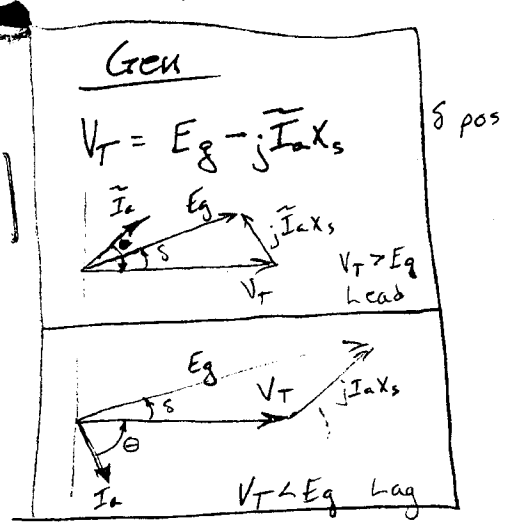 Gen
V_T = E_g - jĨ_aX_s
δ pos
Ĩ_a
E_g
jĨ_aX_s
δ
V_T
V_T > E_g
Lead
E_g
V_T
jI_aX_s
δ
θ
I_a
V_T < E_g Lag